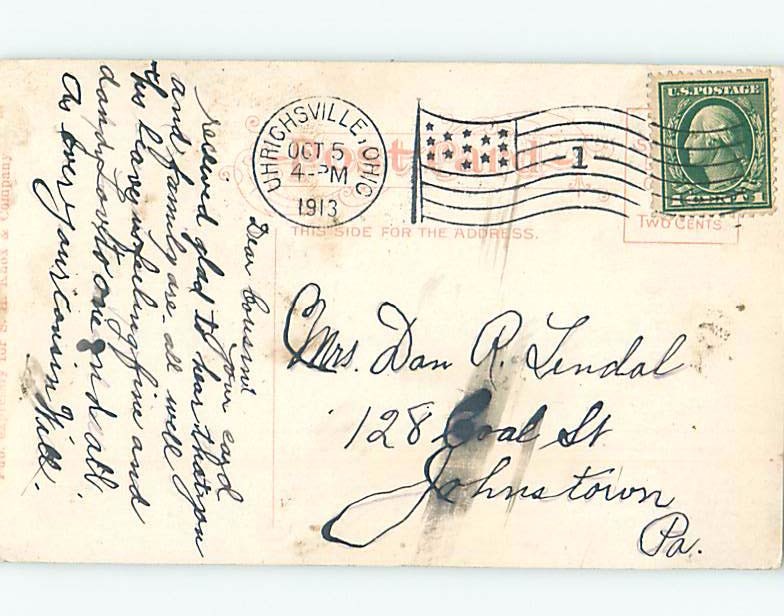 UHRICHSVILLE, OHIO
OCT 5
4-PM
1913
1
U.S. POSTAGE
Post Card
THIS SIDE FOR THE ADDRESS.
TWO CENTS
Mrs. Dan R. Tendal
128 Coal St
Johnstown
Pa.
Dear Cousin
your card
received glad to hear that you
and family are all well
this leaves feeling fine and
dandy Love to one and all
As ever your cousin Will.
Pub. expressly for S. H. Knox & Company